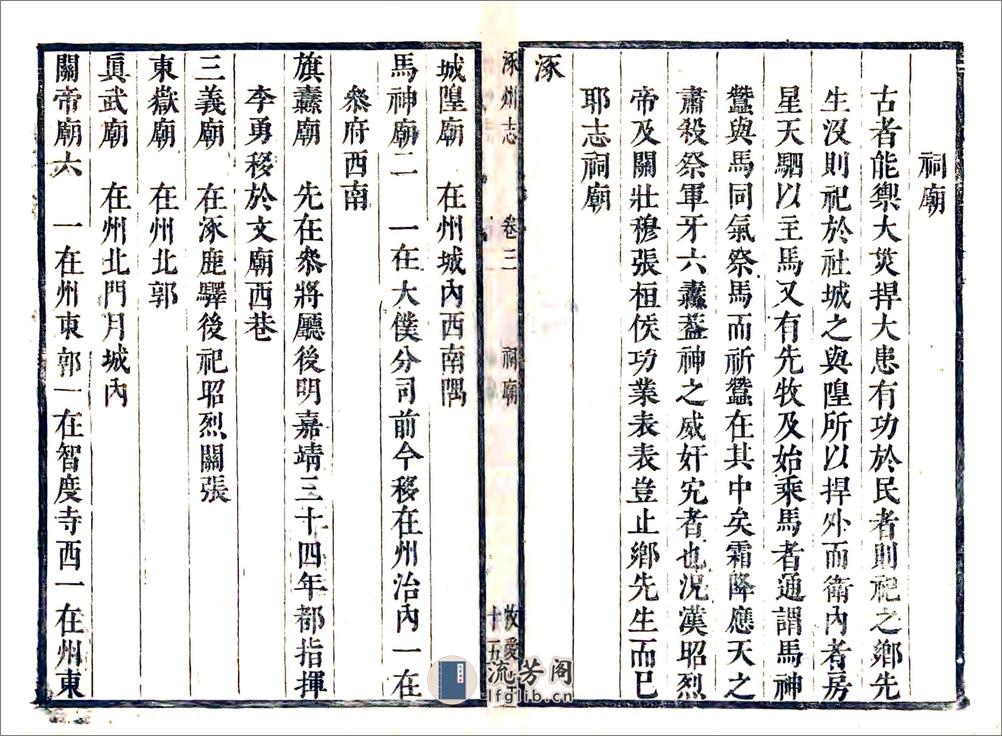 祠廟
古者能禦大災捍大患有功於民者則祀之鄉先
生沒則祀於社城之與隍所以捍外而衛內者房
星天駟以主馬又有先牧及始乘馬者通謂馬神
蠶與馬同氣祭馬而祈蠶在其中矣霜降應天之
肅殺祭軍牙六纛葢神之威奸宄者也況漢昭烈
帝及關壯穆張桓侯功業表表豈止鄉先生而已
耶志祠廟
涿
涿州志
卷三
祠廟
十五
城隍廟 在州城內西南隅
馬神廟二 一在大僕分司前今移在州治內一在
叅府西南
旗纛廟 先在叅將廳後明嘉靖三十四年都指揮
李勇移於文廟西巷
三義廟 在涿鹿驛後祀昭烈關張
東嶽廟 在州北郭
眞武廟 在州北門月城內
關帝廟六 一在州東郭一在智度寺西一在州東
流芳阁
lfglib.cn